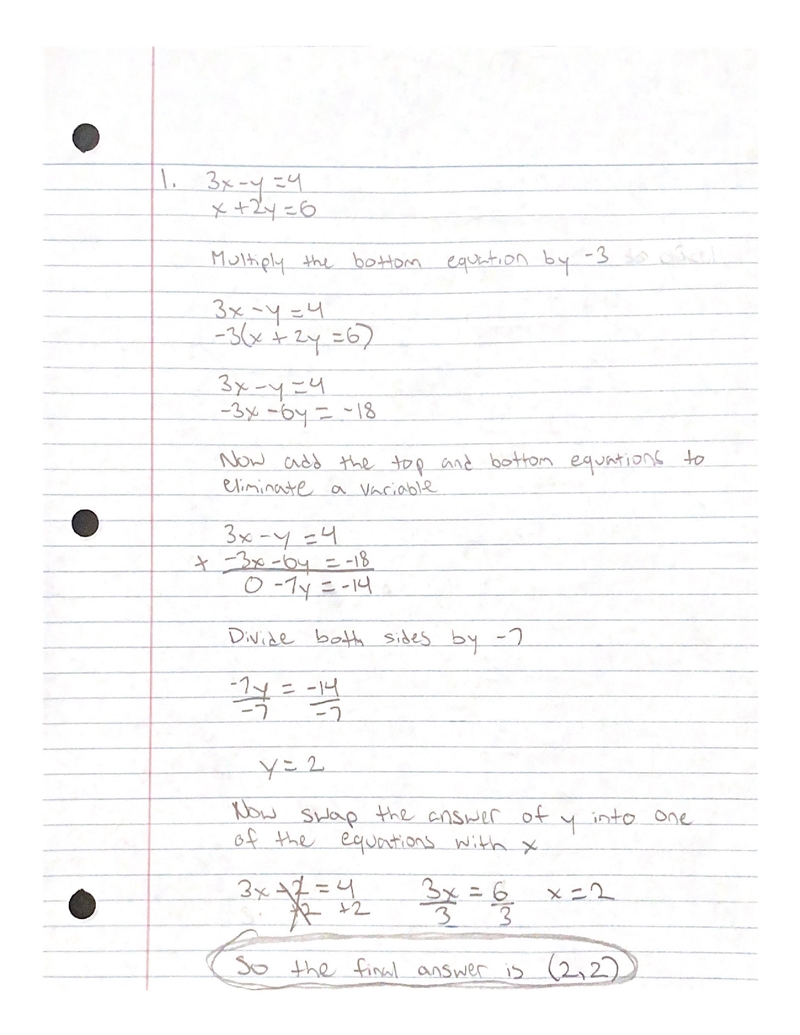 1. 3x-y=4
x+2y=6
Multiply the bottom equation by -3
3x-y=4
-3(x+2y=6)
3x-y=4
-3x-6y=-18
Now add the top and bottom equations to
eliminate a variable
3x-y=4
+ -3x-6y=-18
0 -7y=-14
Divide both sides by -7
-7y = -14
-7 -7
y=2
Now swap the answer of y into one
of the equations with x
3x-2=4 3x = 6 x=2
+2 +2 3 3
So the final answer is (2,2)